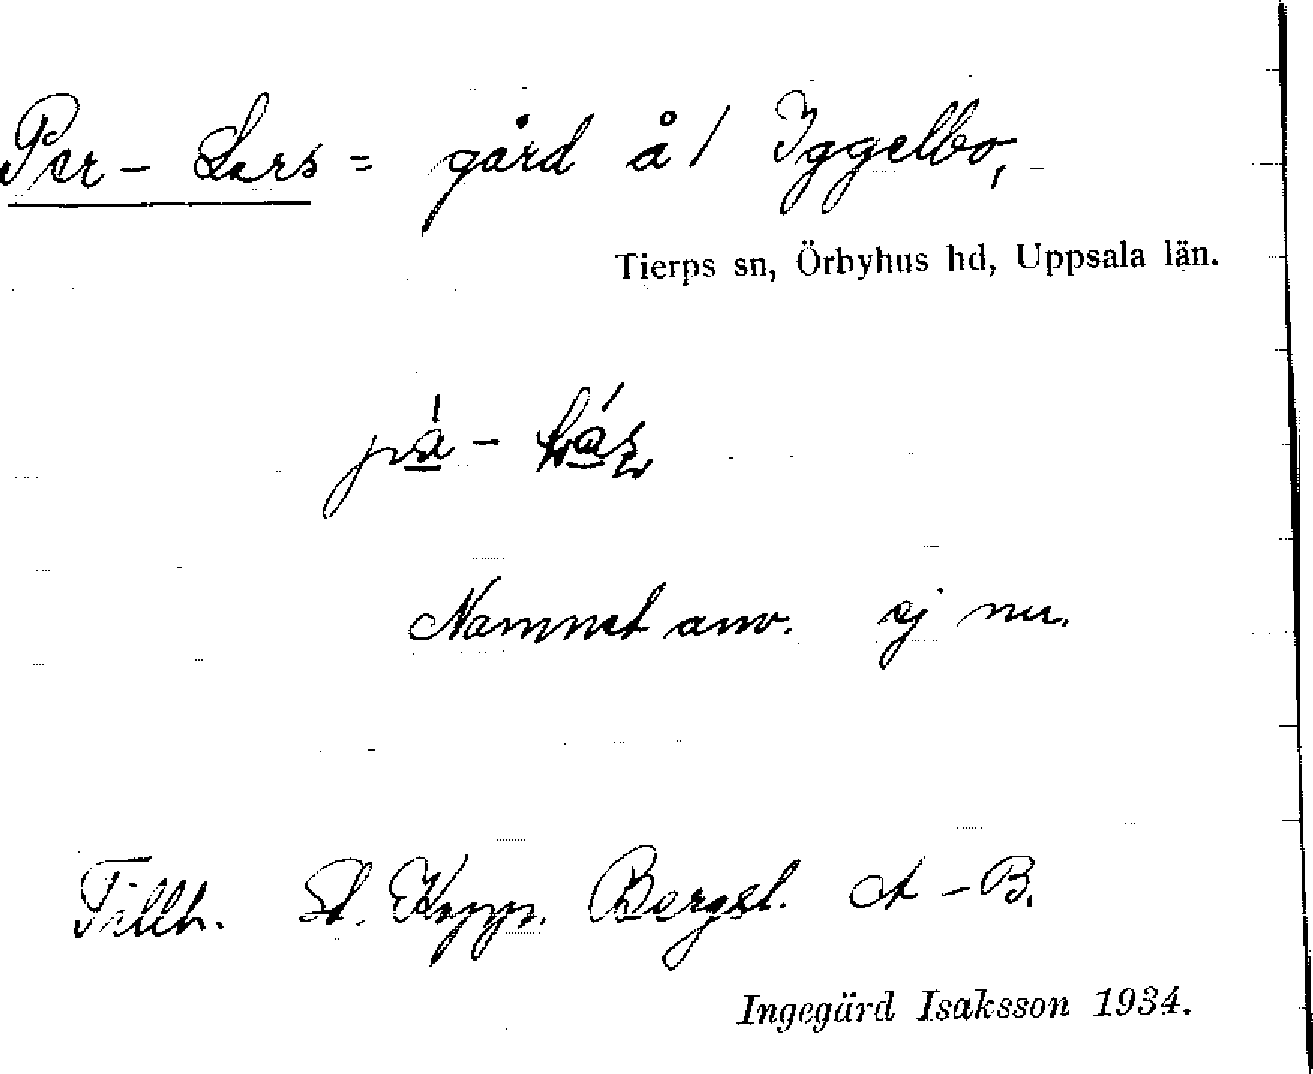 Per-Lars = gård å 1 Yggelbo,
Tierps sn, Örbyhus hd, Uppsala län.
Namnet anv. ej nu.
Tillh. St. Kopp. Bergsl. A-B.
Ingegärd Isaksson 1934.